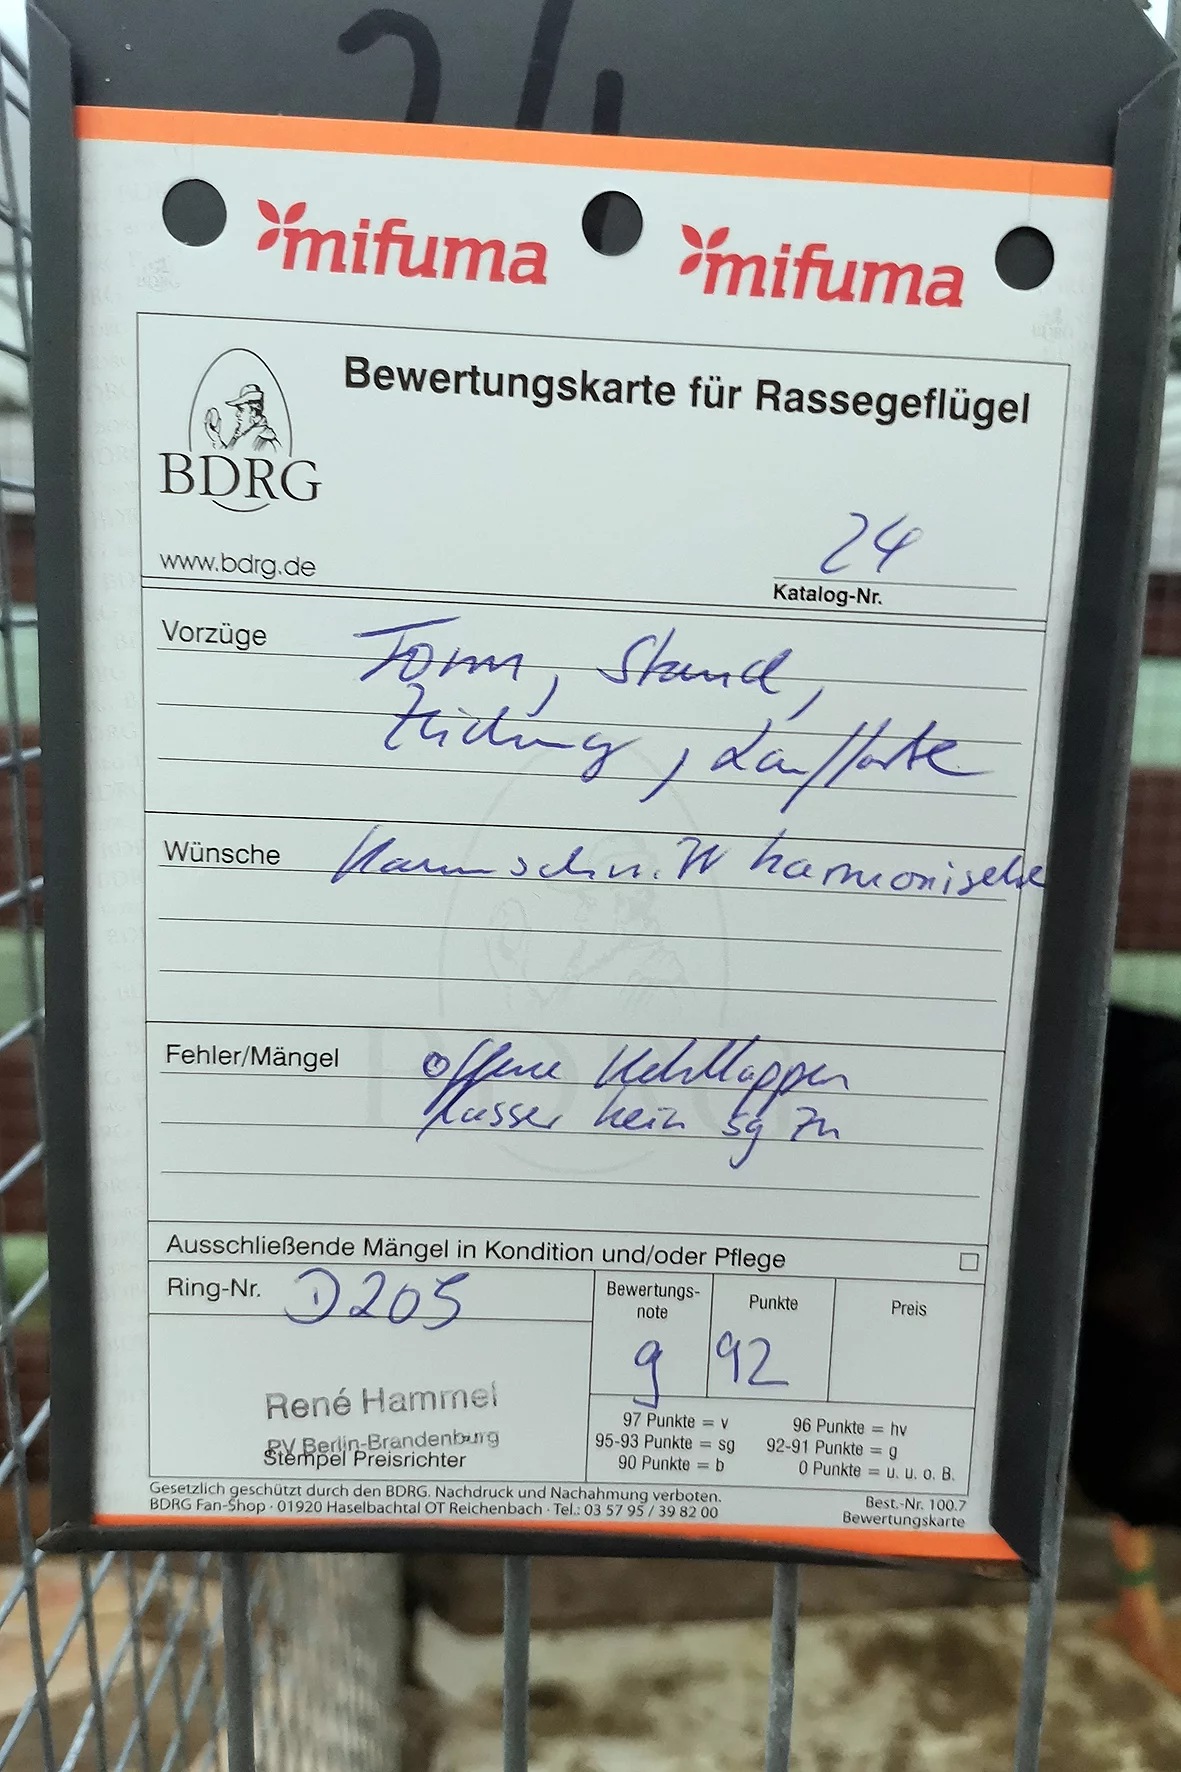 24
mifuma mifuma
Bewertungskarte für Rassegeflügel
BDRG
www.bdrg.de
24
Katalog-Nr.
Vorzüge Form, Stand,
Zeichnung, Lauffarbe
Wünsche Kammschn. harmonischer
Fehler/Mängel offene Kehllappen
lassen kein sg zu
Ausschließende Mängel in Kondition und/oder Pflege
Ring-Nr. D205
Bewertungs-
note
g
Punkte
92
Preis
René Hammel
PV Berlin-Brandenburg
Stempel Preisrichter
97 Punkte = v 96 Punkte = hv
95-93 Punkte = sg 92-91 Punkte = g
90 Punkte = b 0 Punkte = u. u. o. B.
Gesetzlich geschützt durch den BDRG. Nachdruck und Nachahmung verboten.
BDRG Fan-Shop · 01920 Haselbachtal OT Reichenbach · Tel.: 03 57 95 / 39 82 00
Best.-Nr. 100.7
Bewertungskarte